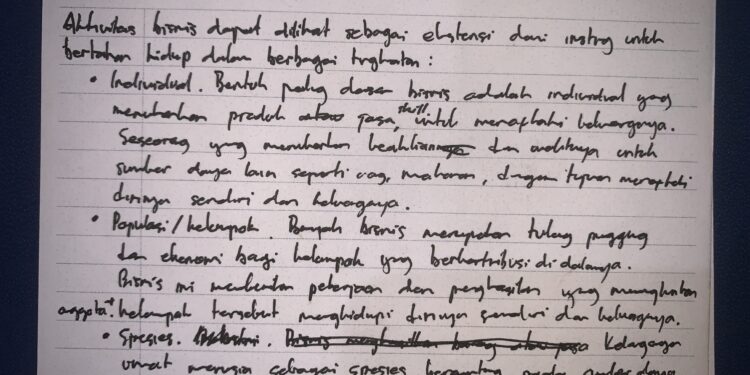 Aktivitas bisnis dapat dilihat sebagai ekstensi dari insting untuk
bertahan hidup dalam berbagai tingkatan :
• Individual. Bentuk paling dasar bisnis adalah individual yang
menukarkan produk atau jasa, skill untuk menafkahi keluarganya.
Seseorang yang menukarkan keahliannya dan waktunya untuk
sumber daya lain seperti uang, makanan, dengan tujuan menafkahi
dirinya sendiri dan keluarganya.
• Populasi/kelompok. Banyak bisnis merupakan tulang punggung
dan ekonomi bagi kelompok yang berkontribusi di dalamnya.
Bisnis ini memberikan pekerjaan dan penghasilan yang
anggota kelompok tersebut menghidupi dirinya sendiri dan keluarganya.
• Spesies. Bisnis menghasilkan barang atau jasa
umat manusia sebagai spesies bergantung pada